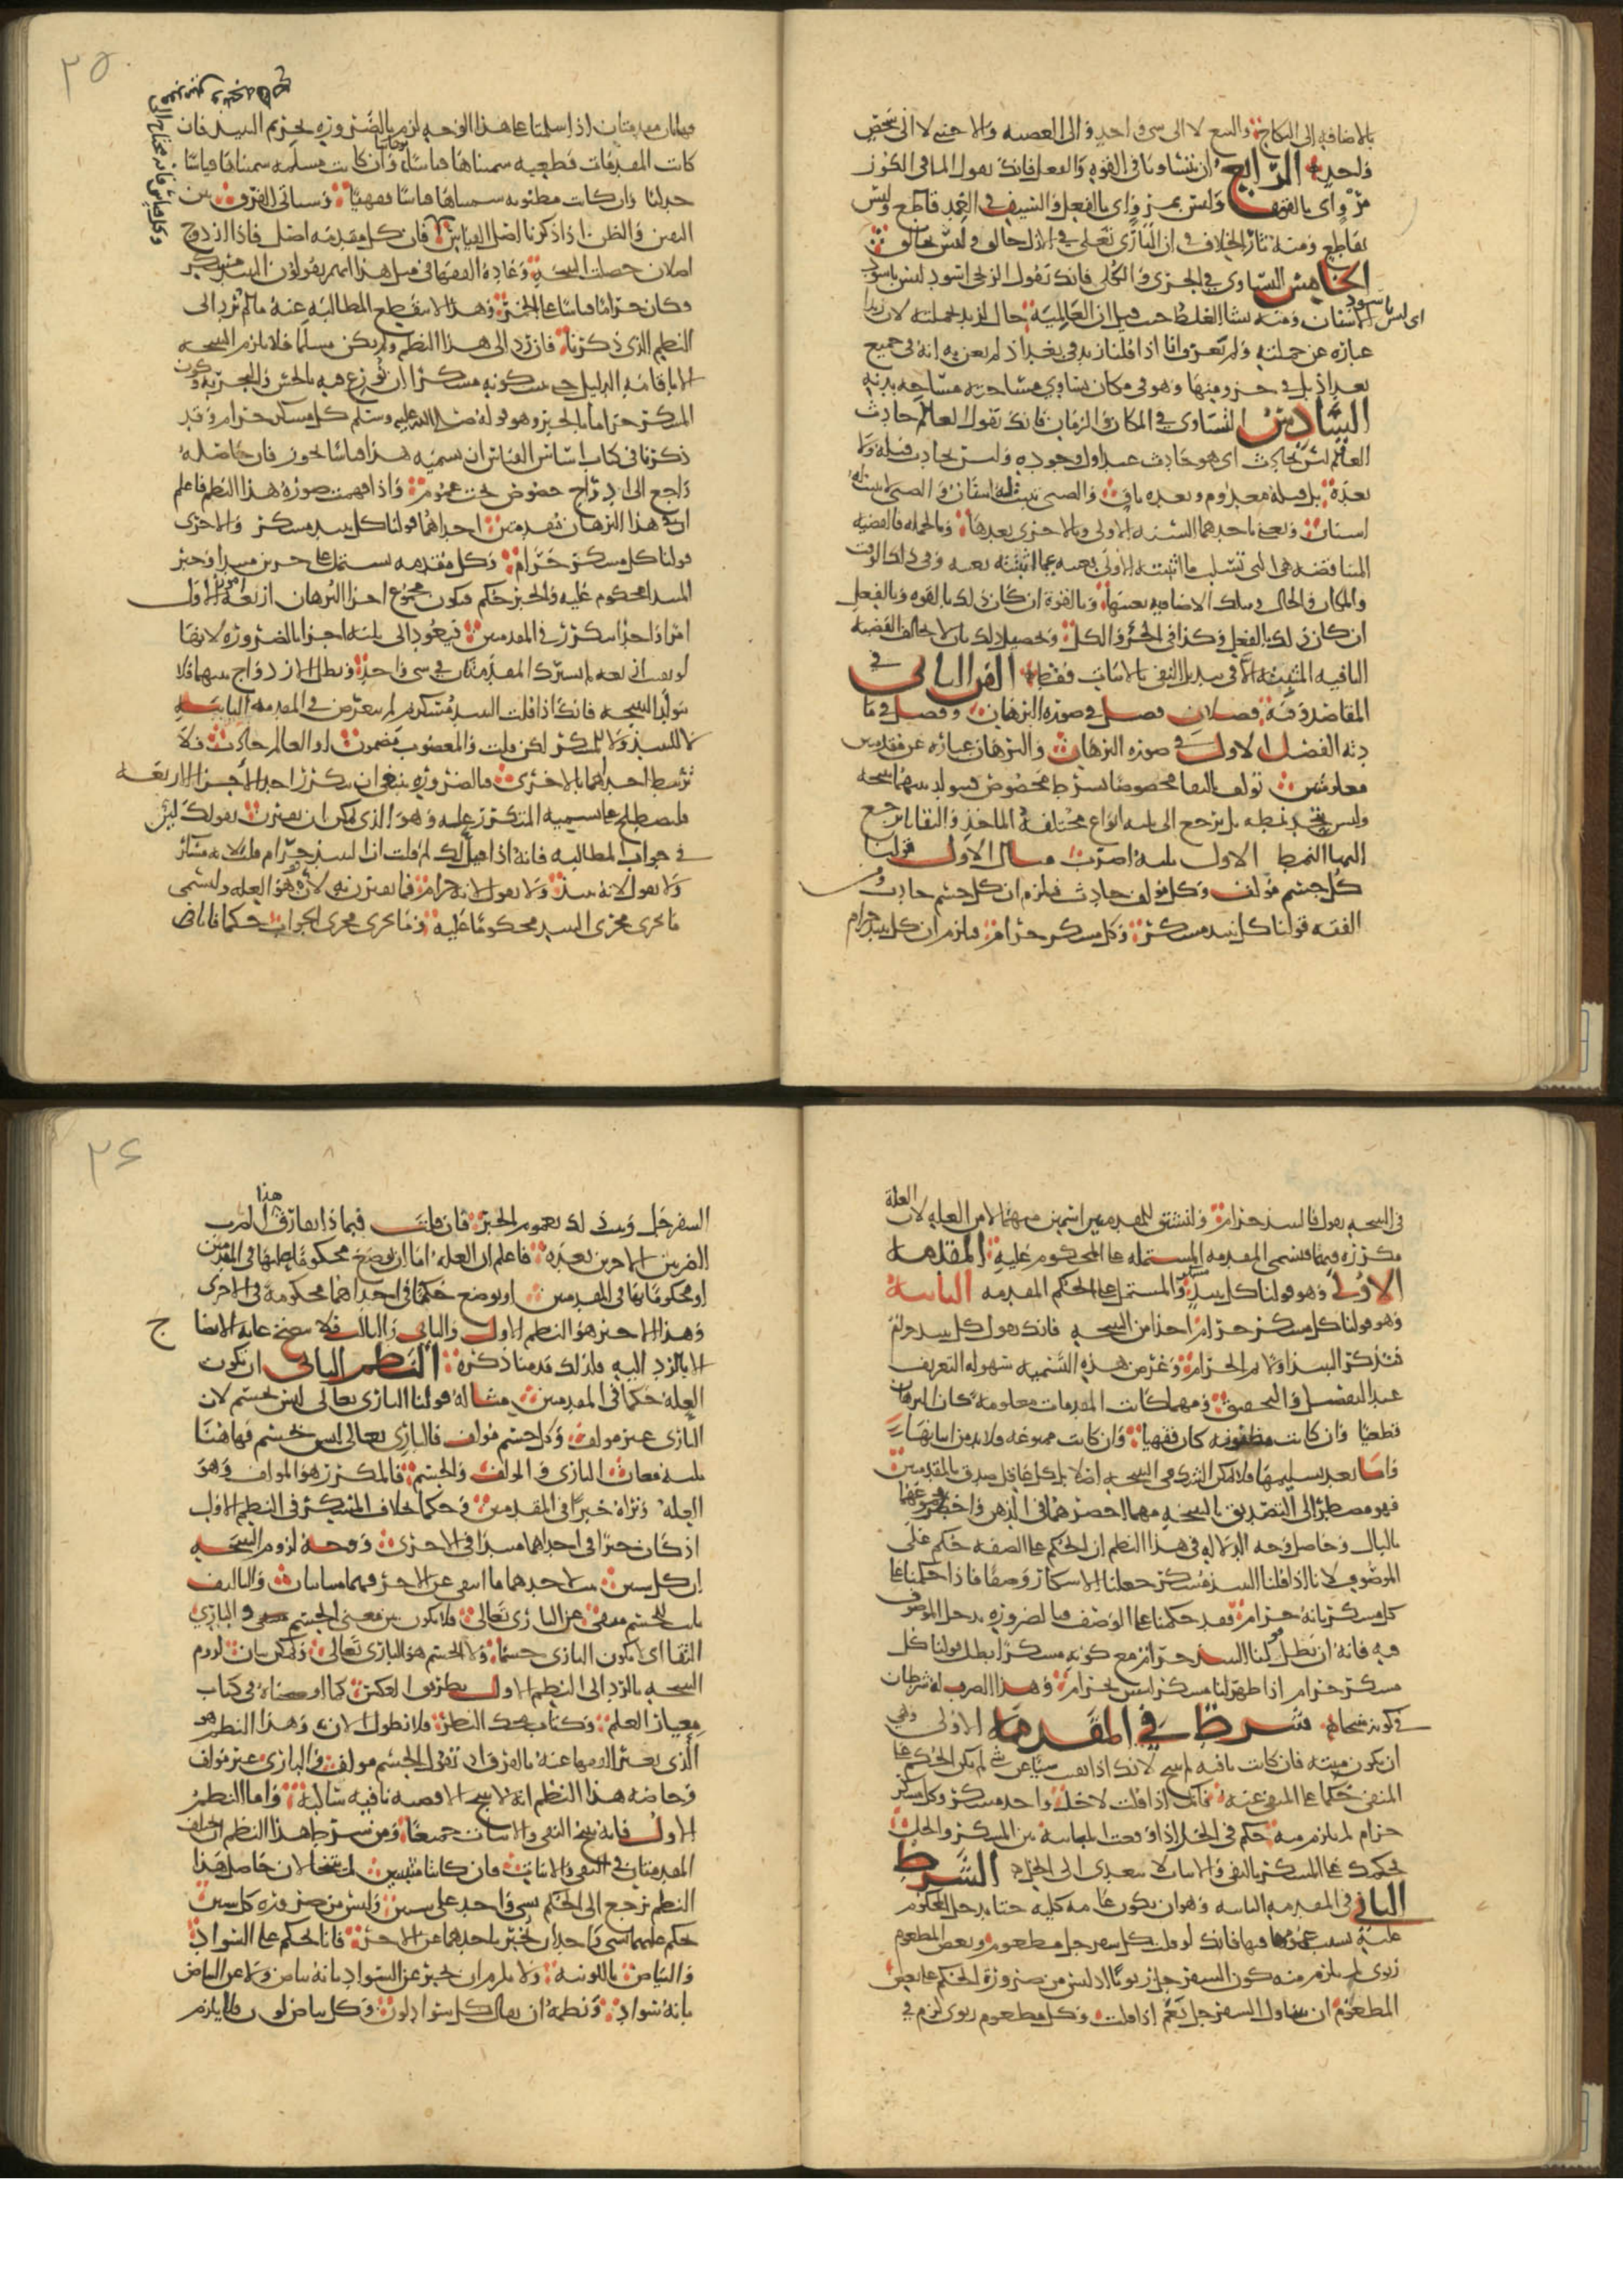 بالاضافه الى النكاح والبيع لا الى شي واحد والى العصبه والاجنبي لا الى شخص
واحد الرابع ان يتساويا في القوه والفعل فانك تقول الما في الكوز
مرو اي بالقوه وليس بمرو اي بالفعل والسيف في الغمد قاطع وليس
بقاطع ومنه ثار الخلاف في ان الباري تعلى في الازل خالق وليس بخالق
الخامس التساوي في الجزئ والكلي فانك تقول الزنجي اسود ليس باسود
اي ليس باسود الاسنان ومنه نشا الغلط حيث قيل ان العالمية حال لزيد بجملته لان زيدا
عباره عن جملته ولم نعرف انا اذا قلنا زيد في بغداذ لم نعن به انه في جميع
بغداذ بل في جزو منها وهو في مكان يساوي مساحته مساحه بدنه
السادس التساوي في المكان والزمان فانك تقول العالم حادث
العالم ليس بحادث اي هو حادث عند اول وجوده وليس بحادث قبله ولا
بعده بل قبله معدوم وبعده باق والصبي تنبت له اسنان والصبي لا تنبت له
اسنان ونعني باحدهما السنه الاولى وبالاخرى بعدها وبالجمله فالقضيه
المناقضه هي التي تسلب ما اثبتته الاولى بعينه عما اثبتته بعينه وفي ذلك الوقت
والمكان والحال وبتلك الاضافيه بعينها وبالقوه ان كان ذلك بالقوه وبالفعل
ان كان ذلك بالفعل وكذا في الجزؤ والكل وتحصيل ذلك بان لا تخالف القضيه
النافيه المثبته الا في تبديل النفي بالاثبات فقط الفن الثاني في
المقاصد وفيه فصلان فصل في صوره البرهان وفصل في ما
دته الفصل الاول في صوره البرهان والبرهان عباره عن مقدمتين
معلومتين تولف تاليفا مخصوصا بشرط مخصوص فيتولد بينهما نتيجه
وليس يتحد نمطه بل يرجع الى ثلثه انواع مختلفه الماخذ والبقايا ترجع
اليها النمط الاول ثلثه اضرب مثال الاول قولنا
كل جسم مولف وكل مولف حادث فيلزم ان كل جسم حادث ومن
الفقه قولنا كل نبيذ مسكر وكل مسكر حرام فيلزم ان كل نبيذ حرام
٢٥
فهاتان مقدمتان اذا سلمتا على هذا الوجه لزم بالضروره تحريم النبيذ فان
كانت المقدمات قطعيه سميناها برهانا وان كانت مسلمه سميناها قياسا
جدليا وان كانت مظنونه سميناها قياسا فقهيا وسياتي الفرق بين
اليقين والظن اذا ذكرنا اصل القياس فان كل مقدمه اصل فاذا ازدوج
اصلان حصلت النتيجه وعاده الفقها في مثل هذا انهم يقولون النبيذ مسكر
فكان حراما قياسا على الخمر وهذا لا تنقطع المطالبه عنه ما لم يرد الى
النظم الذي ذكرناه فان رد الى هذا النظم ولم يكن مسلما فلا تلزم النتيجه
الا باقامه الدليل حتى يثبت كونه مسكرا ان نوزع فيه بالحس والتجربه وكون
المسكر حراما بالخبر وهو قوله صلى الله عليه وسلم كل مسكر حرام وقد
ذكرنا في كتاب اساس القياس ان تسميه هذا قياسا تجوز فان حاصله
راجع الى ادراج خصوص تحت عموم واذا فهمت صوره هذا النظم فاعلم
ان في هذا البرهان مقدمتين احداهما قولنا كل نبيذ مسكر والاخرى
قولنا كل مسكر حرام وكل مقدمه تشتمل على جزين مبتدا وخبر
المبتدا محكوم عليه والخبر حكم فيكون مجموع اجزا البرهان اربعه امور الا ان
امرا واحدا يتكرر في المقدمتين فيعود الى ثلثه اجزا بالضروره لانها
لو بقيت اربعه لم تشترك المقدمتان في شي واحد وبطل الازدواج بينهما فلا
تتولد النتيجه فانك اذا قلت النبيذ مسكر ثم لم تتعرض في المقدمه الثانيه
لا للنبيذ ولا للمسكر لكن قلت والمغصوب مضمون او العالم حادث فلا
ترتبط احداهما بالاخرى فبالضروره ينبغي ان يتكرر احد الاجزا الاربعه
فلنصطلح على تسميه المتكرر عله وهو الذي يمكن ان يقترن بقولك لان
في جواب المطالبه فانه اذا قيل لك لم قلت ان النبيذ حرام قلت لانه مسكر
ولا تقول لانه نبيذ ولا تقول لانه حرام فما يقترن به لان هو العله ولنسمي
ما يجري مجرى النبيذ محكوما عليه وما يجري مجرى الحرام حكما فانا في
في النتيجه نقول فالنبيذ حرام ولنشتق للمقدمتين اسمين منهما لا من العله لان العلة
متكرره فيهما فنسمي المقدمه المشتمله على المحكوم عليه المقدمه
الاولى وهو قولنا كل نبيذ مسكر والمشتمل على الحكم المقدمه الثانيه
وهو قولنا كل مسكر حرام اخذا من النتيجه فانك تقول كل نبيذ حرام
فتذكر النبيذ اولا ثم الحرام وغرض هذه التسميه سهوله التعريف
عند التفصيل والتحقيق ومهما كانت المقدمات معلومه كان البرهان
قطعيا وان كانت مظنونه كان فقهيا وان كانت ممنوعه فلا بد من اثباتها
واما بعد تسليمها فلا يمكن الشك في النتيجه اصلا بل كل عاقل صدق بالمقدمتين
فهو مضطر الى التصديق بالنتيجه مهما احضرهما في الذهن واحضر مجموعهما
بالبال وحاصل وجه الدلاله في هذا النظم ان الحكم على الصفه حكم على
الموصوف لانا اذا قلنا النبيذ مسكر جعلنا الاسكار وصفا فاذا حكمنا على
كل مسكر بانه حرام فقد حكمنا على الوصف فبالضروره يدخل الموصوف
فيه فانه ان بطل قولنا النبيذ حرام مع كونه مسكرا بطل قولنا كل
مسكر حرام اذا ظهر لنا مسكر ليس بحرام وهذا الضرب له شرطان
في كونه منتجا شرط في المقدمه الاولى وهي
ان تكون مثبته فان كانت نافيه لم تنتج لانك اذا نفيت شيا عن شي لم يكن الحكم على
المنفي حكما على المنفي عنه فانك اذا قلت لا خل واحد مسكر وكل مسكر
حرام لم يلزم منه حكم في الخل اذا وقعت المباينه بين المسكر والخل
فحكمك على المسكر بالنفي والاثبات لا يتعدى الى الخل الشرط
الثاني في المقدمه الثانيه وهو ان تكون عامه كليه حتى يدخل المحكوم
عليه بسبب عمومها فيها فانك لو قلت كل سفرجل مطعوم وبعض المطعوم
ربوي لم يلزم منه كون السفرجل ربويا اذ ليس من ضروره الحكم على بعض
المطعوم ان يتناول السفرجل نعم اذا قلت وكل مطعوم ربوي لزم في
٢٦
السفرجل ويثبت ذلك بعموم الخبر فان قلت فبماذا يفارق هذا الضرب
الضربين الاخرين بعده فاعلم ان العله اما ان توضع محكوما عليها في المقدمتين
او محكوما بها في المقدمتين او توضع حكما في احداهما محكومة في الاخرى
وهذا الاخير هو النظم الاول والثاني والثالث فلا يتضح غايه الاتضاح
الا بالرد اليه فلذلك قدمنا ذكره النظم الثاني ان تكون
العله حكما في المقدمتين مثاله قولنا الباري تعالى ليس بجسم لان
الباري غير مولف وكل جسم مولف فالباري تعالى ليس بجسم فهاهنا
ثلثه معان الباري والمولف والجسم فالمكرر هو المولف وهو
العله وتراه خبرا في المقدمتين وحكما بخلاف المسكر في النظم الاول
اذ كان خبرا في احداهما مبتدا في الاخرى ووجه لزوم النتيجه
ان كل شيين ثبت لاحدهما ما انتفى عن الاخر فهما متباينان والتاليف
ثابت للجسم منفي عن الباري تعالى فلا يكون بين معنى الجسم وبين الباري
التقا اي لا يكون الباري جسما ولا الجسم هو الباري تعالى ويمكن بيان لزوم
النتيجه بالرد الى النظم الاول بطريق العكس كما اوضحناه في كتاب
معيار العلم وكتاب محك النظر فلا نطول الان وهذا النظم هو
الذي يعبر الفقها عنه بالفرق اذ تقول الجسم مولف والباري غير مولف
وخاصه هذا النظم انه لا ينتج الا قضيه نافيه سالبه واما النظم
الاول فانه ينتج النفي والاثبات جميعا ومن شرط هذا النظم ان تختلف
المقدمتان في النفي والاثبات فان كانتا مثبتتين لم تنتجا لان حاصل هذا
النظم يرجع الى الحكم بشي واحد على شيين وليس من ضروره كل شيين
حكم عليهما بشي واحد ان يخبر باحدهما عن الاخر فانا نحكم على السواد
والبياض باللونيه ولا يلزم ان يخبر عن السواد بانه بياض ولا عن البياض
بانه سواد ونظمه ان يقال كل سواد لون وكل بياض لون فلا يلزم